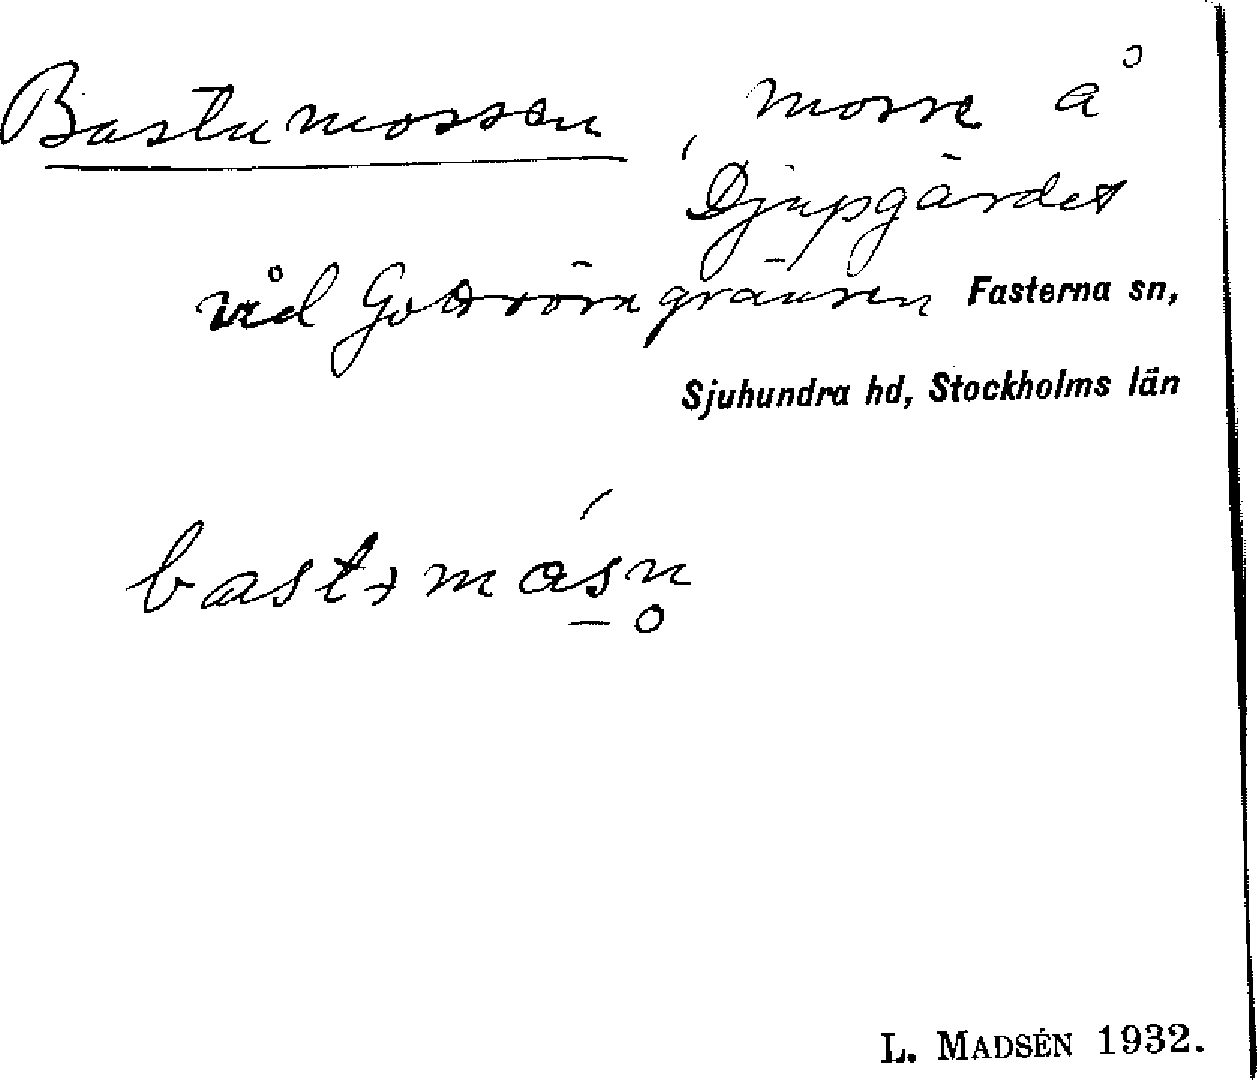 Bastumossen, mosse å
Djupgärdet
vid Gottröragränsen Fasterna sn,
Sjuhundra hd, Stockholms län
L. MADSÉN 1932.